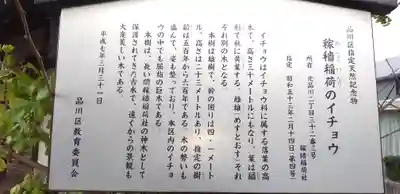 品川区指定天然記念物
稼穡稲荷のイチョウ
かしょくいなり
所有 北品川二丁目三十二番三号
稼穡稲荷社
指定 昭和五十三年二月十四日(第四号)
イチョウはイチョウ科に属する落葉の高
木で、高さ三十メートルにもなり、葉は扇
形で秋に黄葉する。雌雄(めすとおす)それ
ぞれ別の木となる。
本樹は雄樹で、幹の囲りは四・一メート
ル、高さは二十三メートルあり、推定の樹
齢は五百年から六百年である。木の勢いも
盛んで、姿も整っており、本区内のイチョ
ウの中でも屈指の巨木である。
本樹は、長い間稼穡稲荷社の神木として
保護されてきた古木で、遠くからの景観も
大変美しい木である。
平成七年三月三十一日
品川区教育委員会